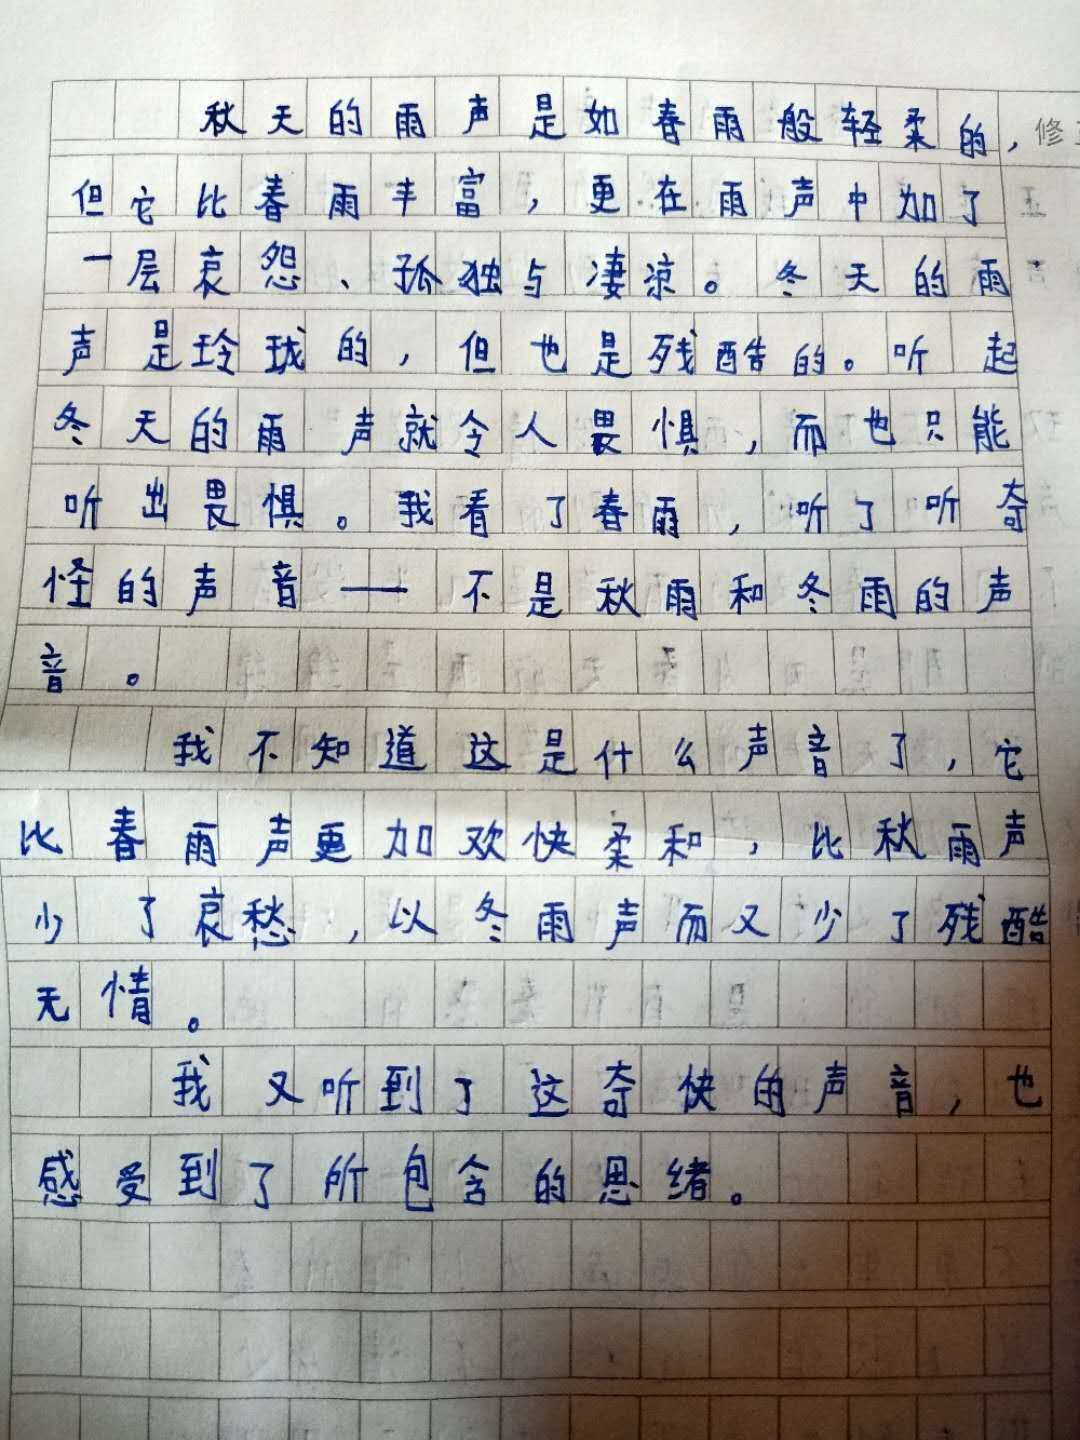 秋天的雨声是如春雨般轻柔的，修
但它比春雨丰富，更在雨声中加了
一层哀怨、孤独与凄凉。冬天的雨
声是玲珑的，但也是残酷的。听起
冬天的雨声就令人畏惧，而也只能
听出畏惧。我看了春雨，听了听奇
怪的声音——不是秋雨和冬雨的声
音。
我不知道这是什么声音了，它
比春雨声更加欢快柔和，比秋雨声
少了哀愁，以冬雨声而又少了残酷
无情。
我又听到了这奇快的声音，也
感受到了所包含的思绪。